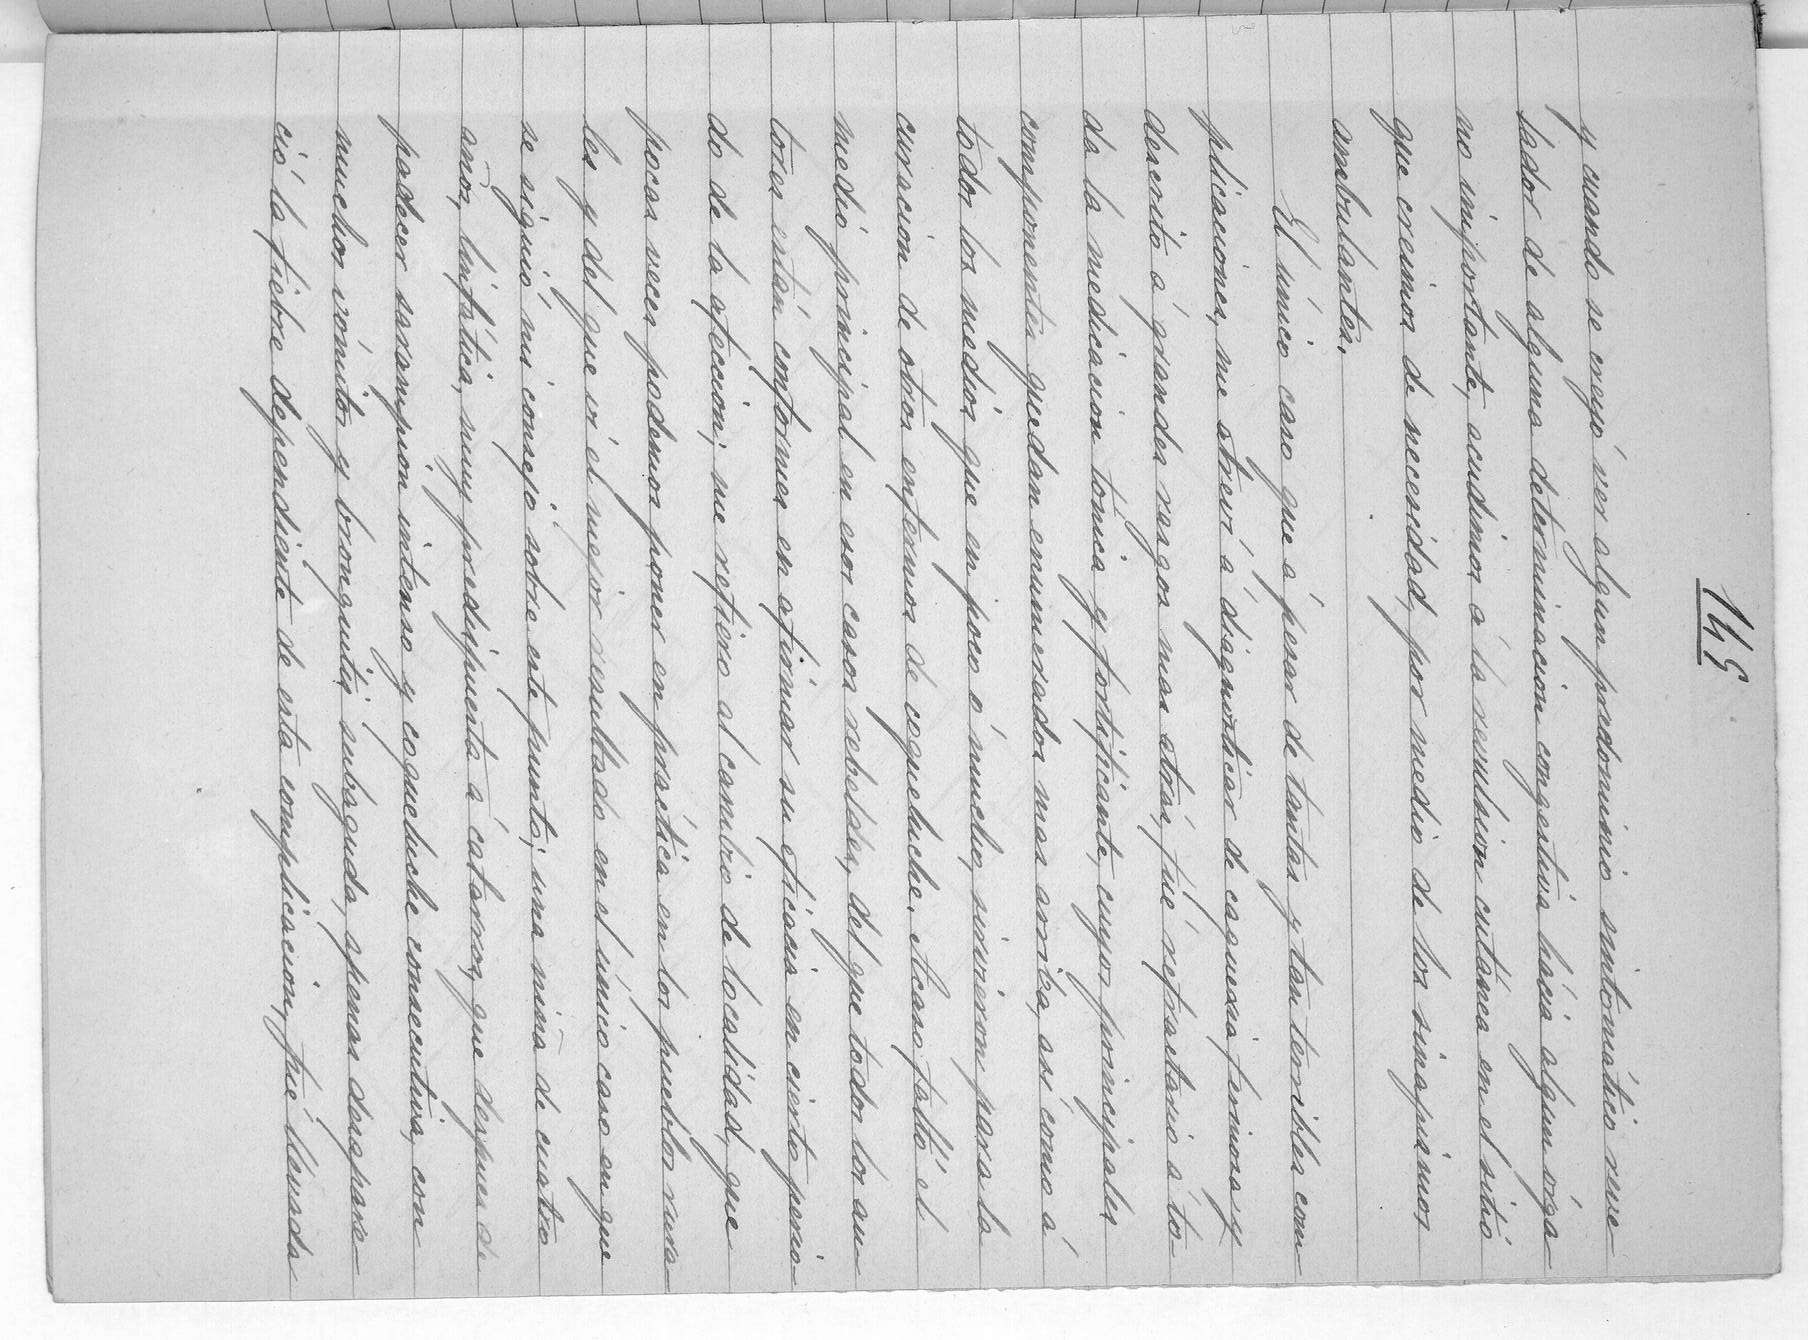 145
y cuando se creyó ver algun predominio sintomático reve-
lador de alguna determinacion congestiva hácia algun órga-
no importante, acudimos á la revulsion cutánea en el sitio
que creimos de necesidad, por medio de los sinapismos
ambulantes.
El único caso que á pesar de tantas y tan terribles com-
plicaciones, me atreví á diagnosticar de caquexia ferinosa y
descrito á grandes rasgos mas atrás, fué refractario á to-
da la medicacion tónica y fortificante, cuyos principales
componentes quedan enumerados mas arriba, asi como á
todos los medios que en poco ó mucho, sirvieron para la
curacion de otros enfermos de coqueluche. Acaso faltó el
medio principal en esos casos rebeldes, del que todos los au-
tores están conformes en afirmar su eficacia en cierto perio-
do de la afeccion; me refiero al cambio de localidad, que
pocas veces podemos poner en práctica en los pueblos rura-
les y del que vi el mejor resultado en el único caso en que
se siguió mi consejo sobre este punto; una niña de cuatro
años, linfática, muy predispuesta á catarros, que despues de
padecer sarampion intenso y coqueluche consecutiva, con
muchos vómitos y bronquitis subaguda, apenas desapare-
ció la fiebre dependiente de esta complicacion, fué llevada